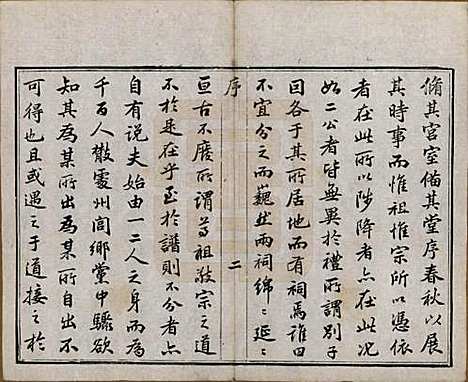 脩其宫室備其堂序春秋以展
其時事而惟祖惟宗所以憑依
者在此所以陟降者亦在此况
如二公者皆無異於禮所謂别子
因各于其所居地而有祠焉誰曰
不宜分之而巍然两祠綿〻延〻
序 二
亘古不廢所謂尊祖敬宗之道
不於是在乎至於譜則不分者亦
自有說夫始由一二人之身而為
千百人散處州閭鄉黨中驟欲
知其為某所出為某所自出不
可得也且或遇之于道接之於